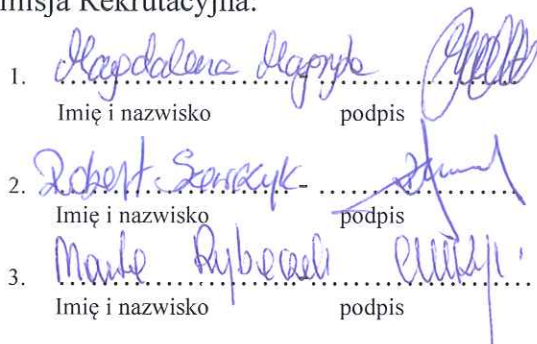 misja Rekrutacyjna:
1. Magdalena
Imię i nazwisko podpis
2. Robert Szewczyk
Imię i nazwisko podpis
3. Marta
Imię i nazwisko podpis